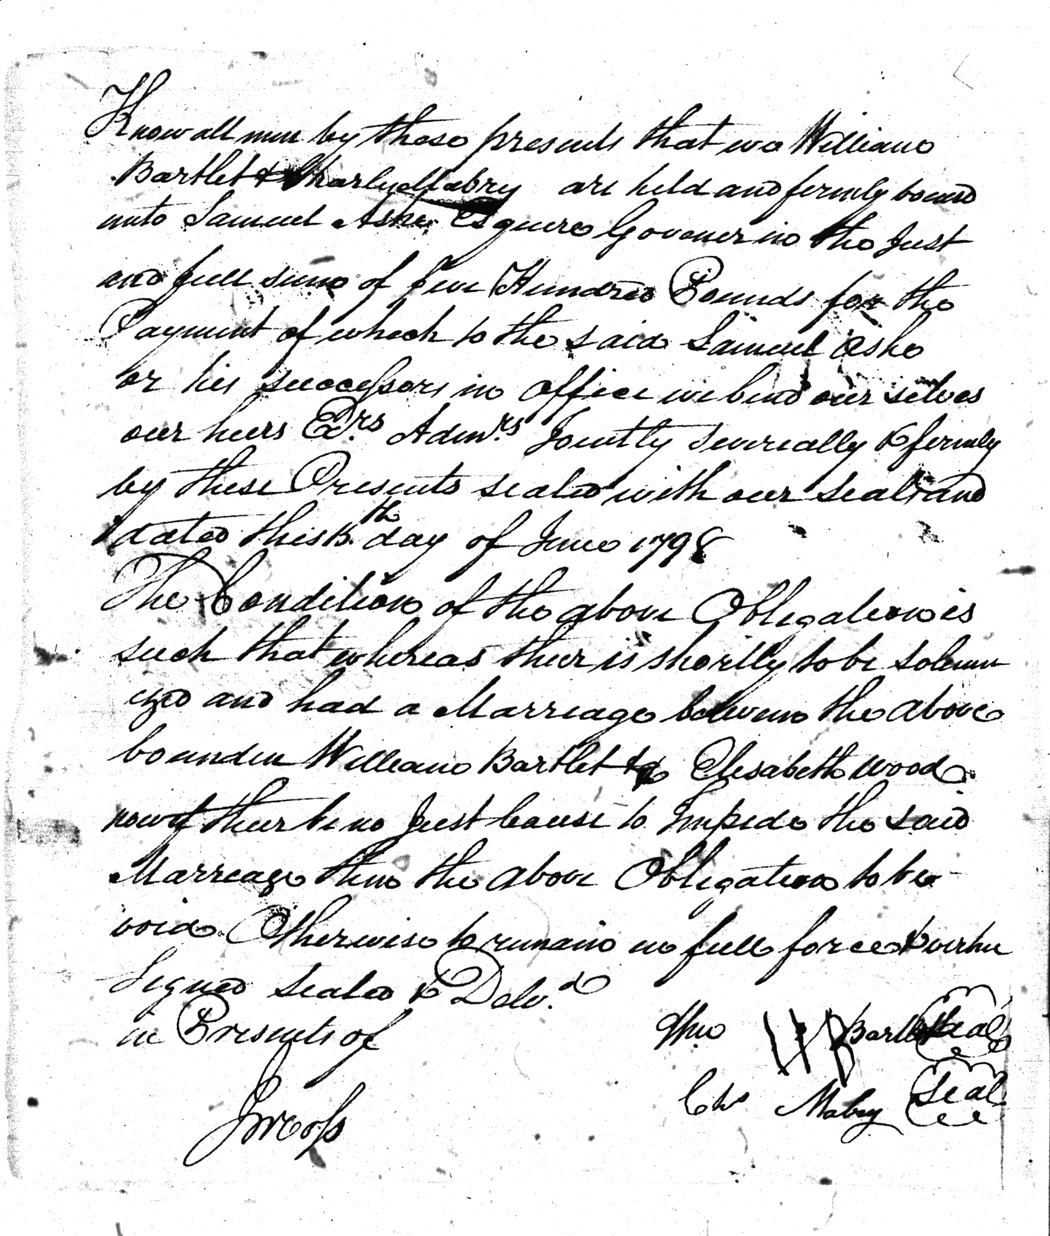 Know all men by these presents that we William
Bartlet & Charly Mabry are held and firmly bound
unto Samuel Ashe Esquere Govener in the Just
and full sum of five Hundred Pounds for the
Payment of which to the said Samuel Ashe
or his successors in office we bind our selves
our heirs Exrs Admrs Jointly severally & firmly
by these Presents sealed with our seals and
dated this th day of June 1798
The Condition of the above Obligation is
such that whereas their is shortly to be solemn
ized and had a Marriage between the above
bounden William Bartlet & Elisabeth Wood
now if their be no Just Cause to Impede the said
Marriage then the above Obligation to be
void Otherwise to remain in full force & virtu
Signed sealed & Delvd
in Presents of
Wm Bartlet Seal
Chs Mabry Seal